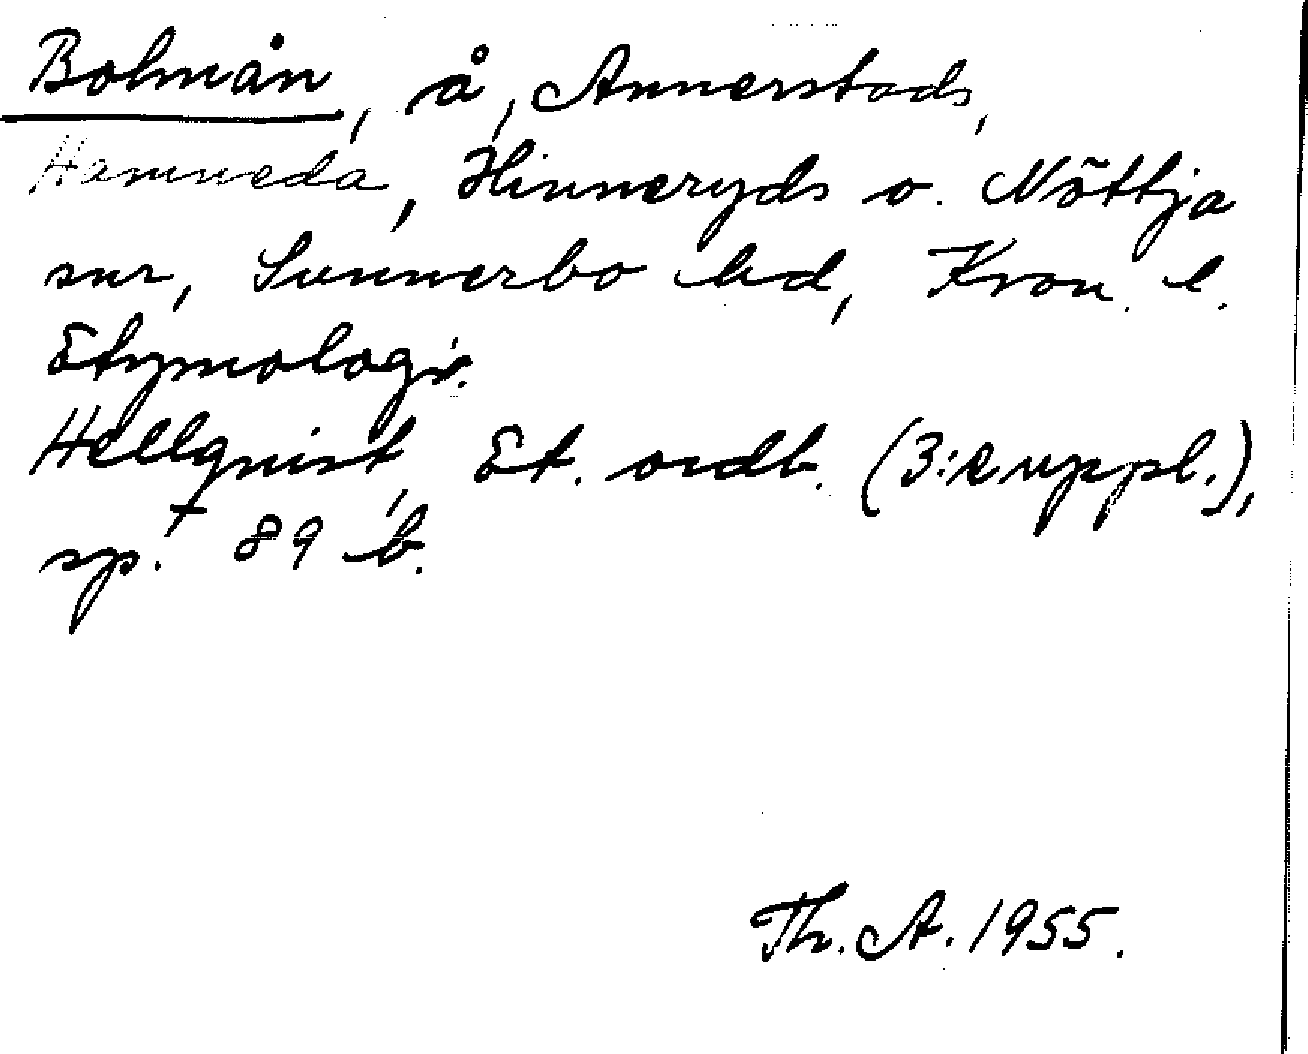 Bolmån, å, Annerstads,
Hamneda, Hinneryds o. Nöttja
snr, Sunnerbo hd, Kron. l.
Etymologi.
Hellquist, Et. ordb. (3:e uppl.),
sp. 89 b.
Th. A. 1955.